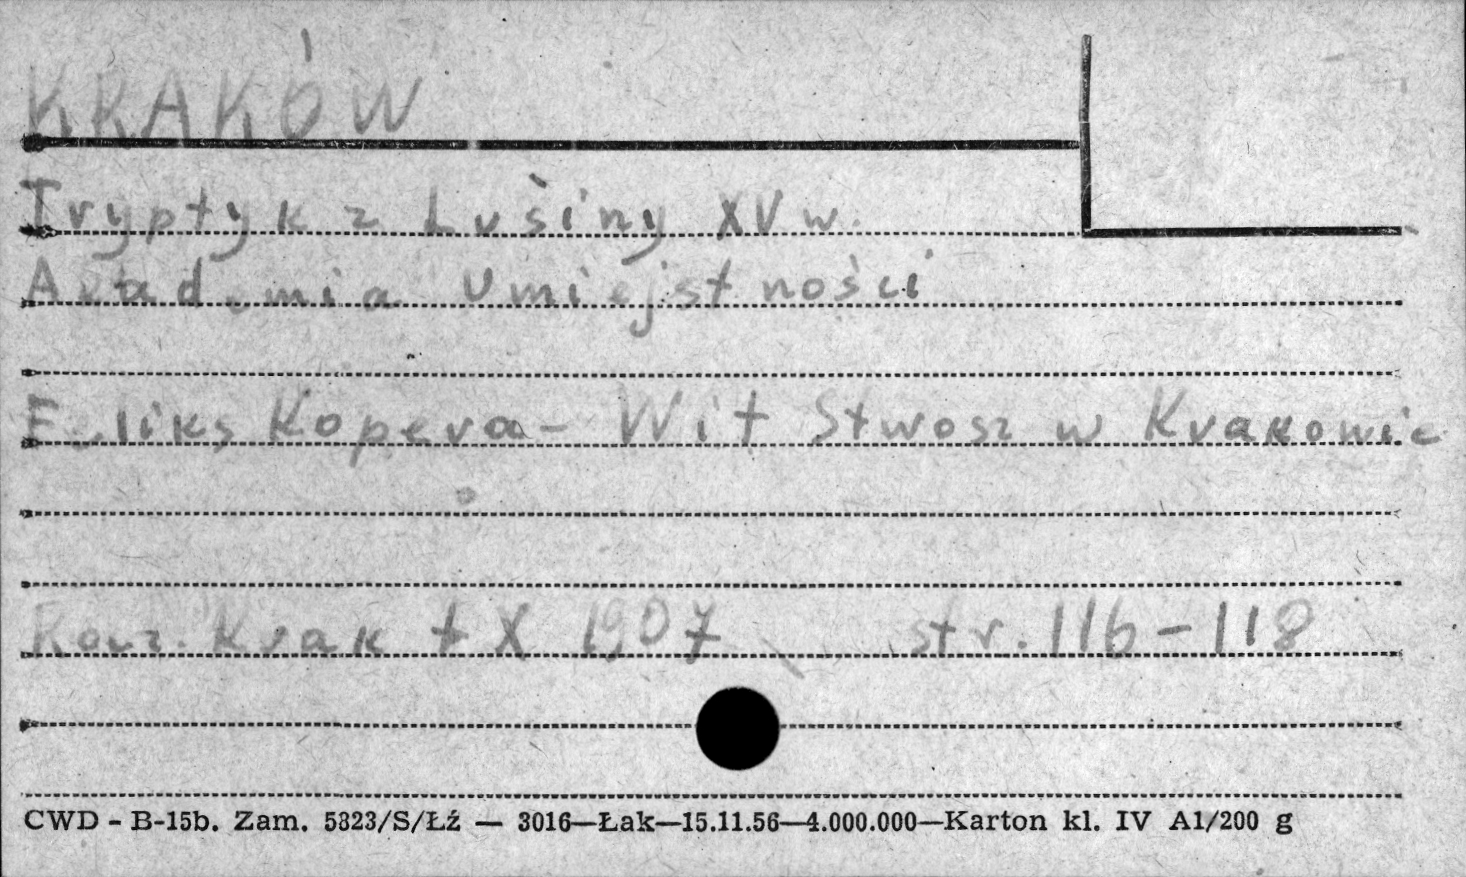 KRAKÓW
Tryptyk z Lusiny XV w.
Akademia Umiejstności
Feliks Kopera - Wit Stwosz w Krakowie
Rocz. Krak t X 1907 str. 116-118
CWD - B-15b. Zam. 5823/S/Łź — 3016—Łak—15.11.56—4.000.000—Karton kl. IV A1/200 g